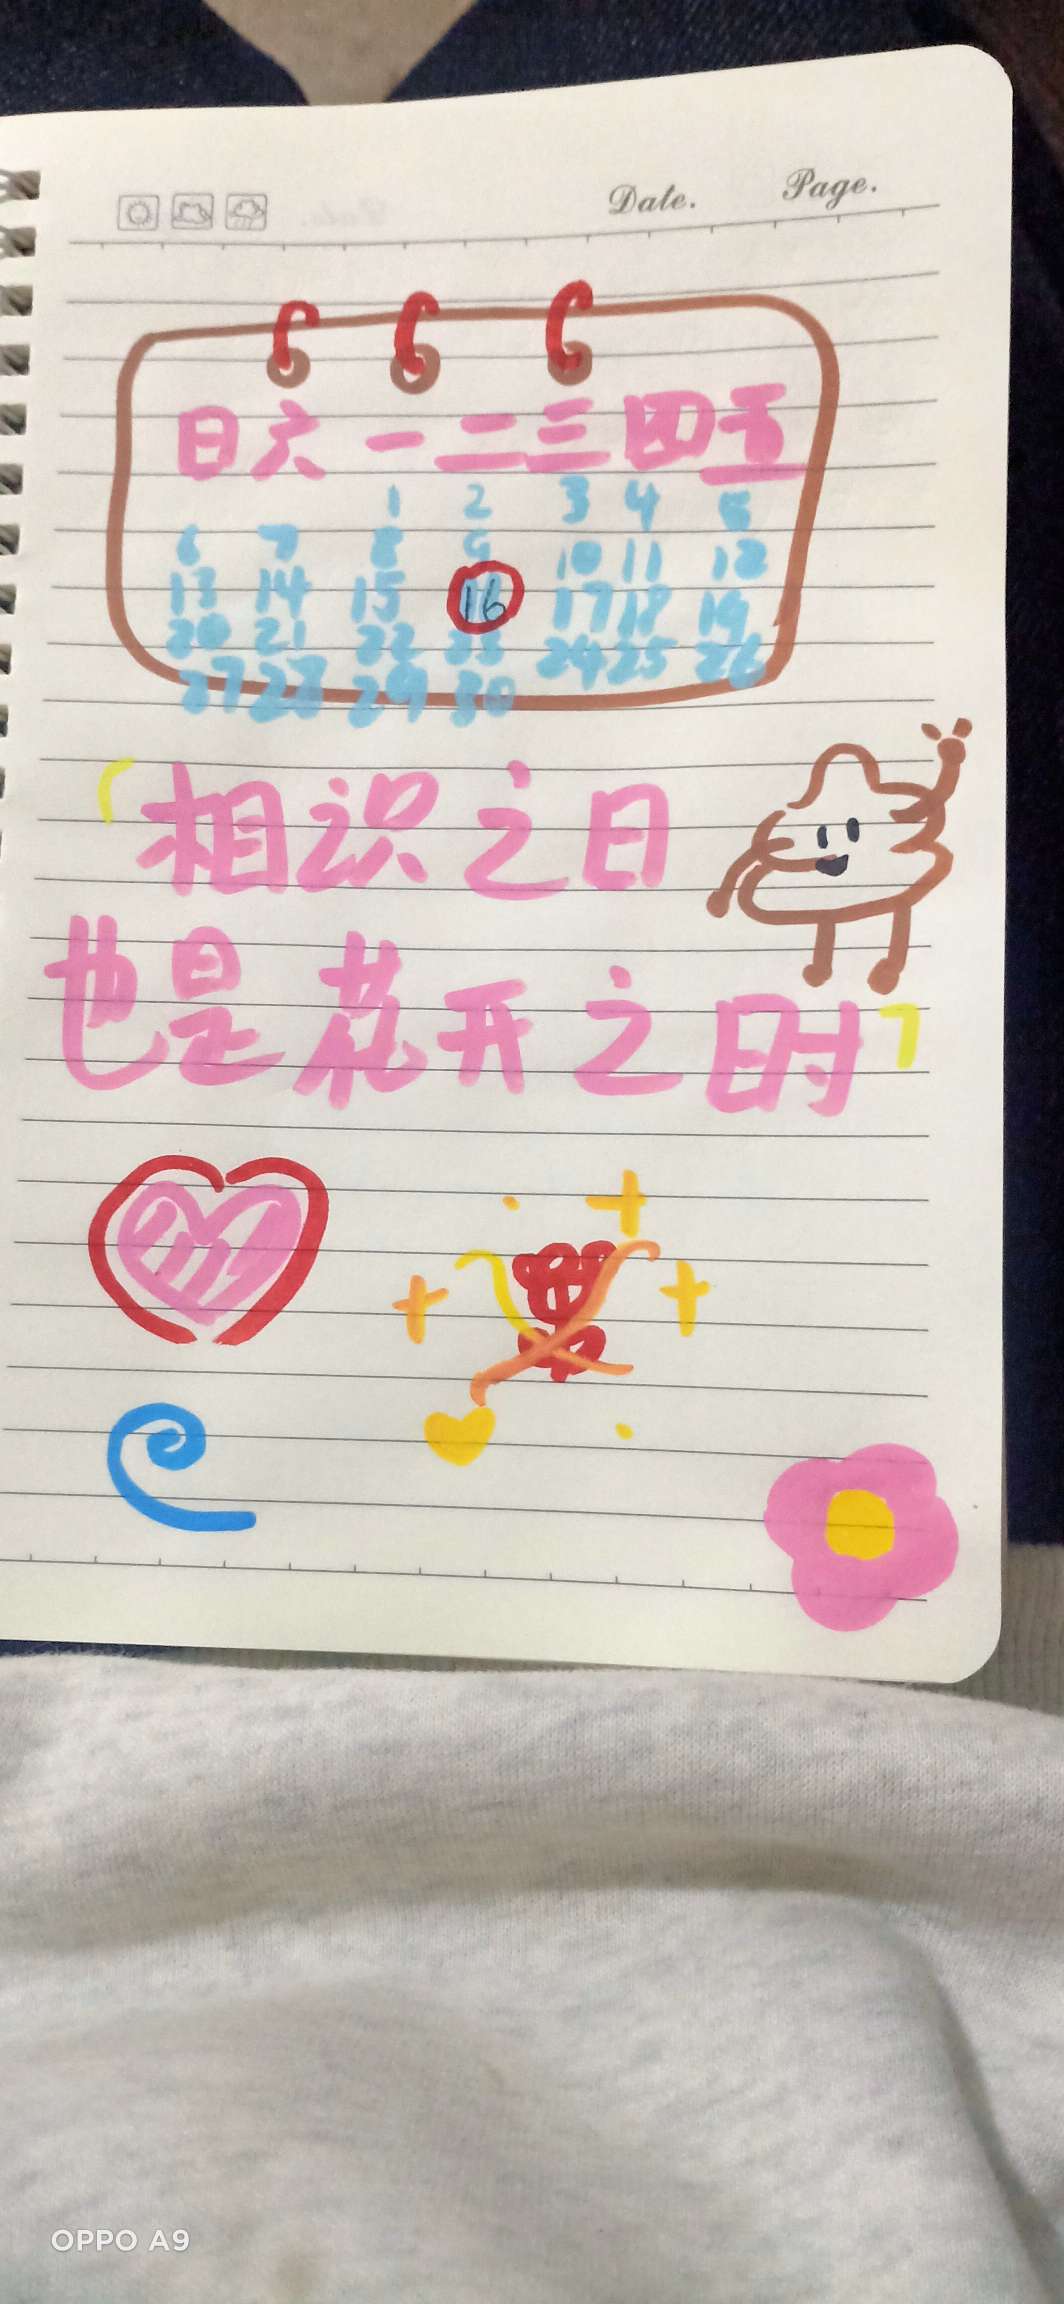 Date. Page.
日六一二三四五
1 2 3 4 5
6 7 8 9 10 11 12
13 14 15 16 17 18 19
20 21 22 23 24 25 26
27 28 29 30
「相识之日
也是花开之时」
OPPO A9